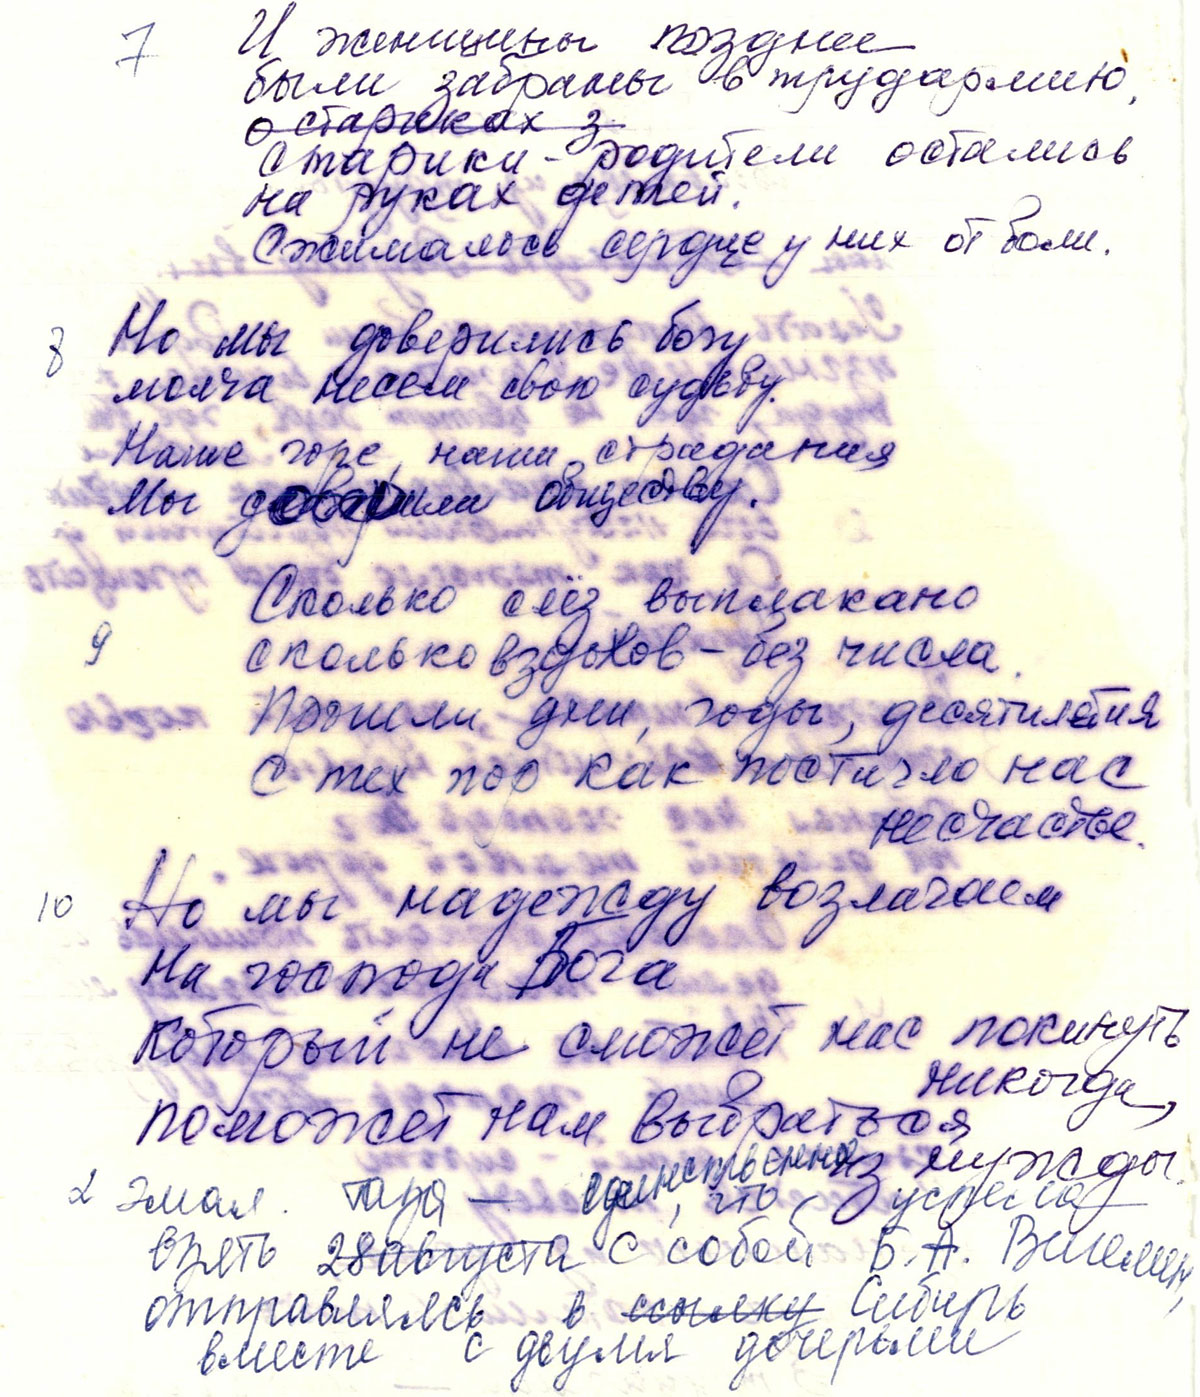 7 И женщины позднее
были забраны в трудармию,
о стариках з
Старики - родители остались
на руках детей.
Сжималось сердце у них от боли.
8 Но мы доверились богу
молча несем свою судьбу.
Наше горе, наши страдания
Мы доверили обществу.
Сколько слёз выплакано
9 сколько вздохов - без числа.
Прошли дни, годы, десятилетия
С тех пор как постигло нас
несчастье.
10 Но мы надежду возлагаем
На господа Бога
Который не сможет нас покинуть
никогда,
поможет нам выбраться
из нужды.
2 эмал. таз — единственно, что успела
взять 28 августа с собой Б. А.
отправляясь в ссылку Сибирь
вместе с двумя дочерьми